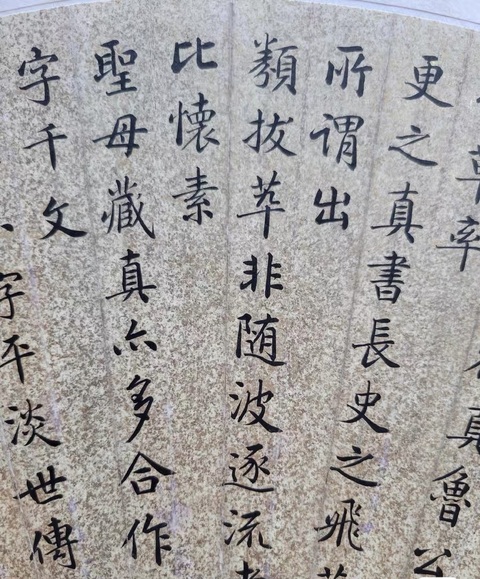 真魯公
草率
更之真書長史之飛
所謂出
類拔萃非随波逐流
比懷素
聖母藏真亦多合作
字千文
字平淡世傳